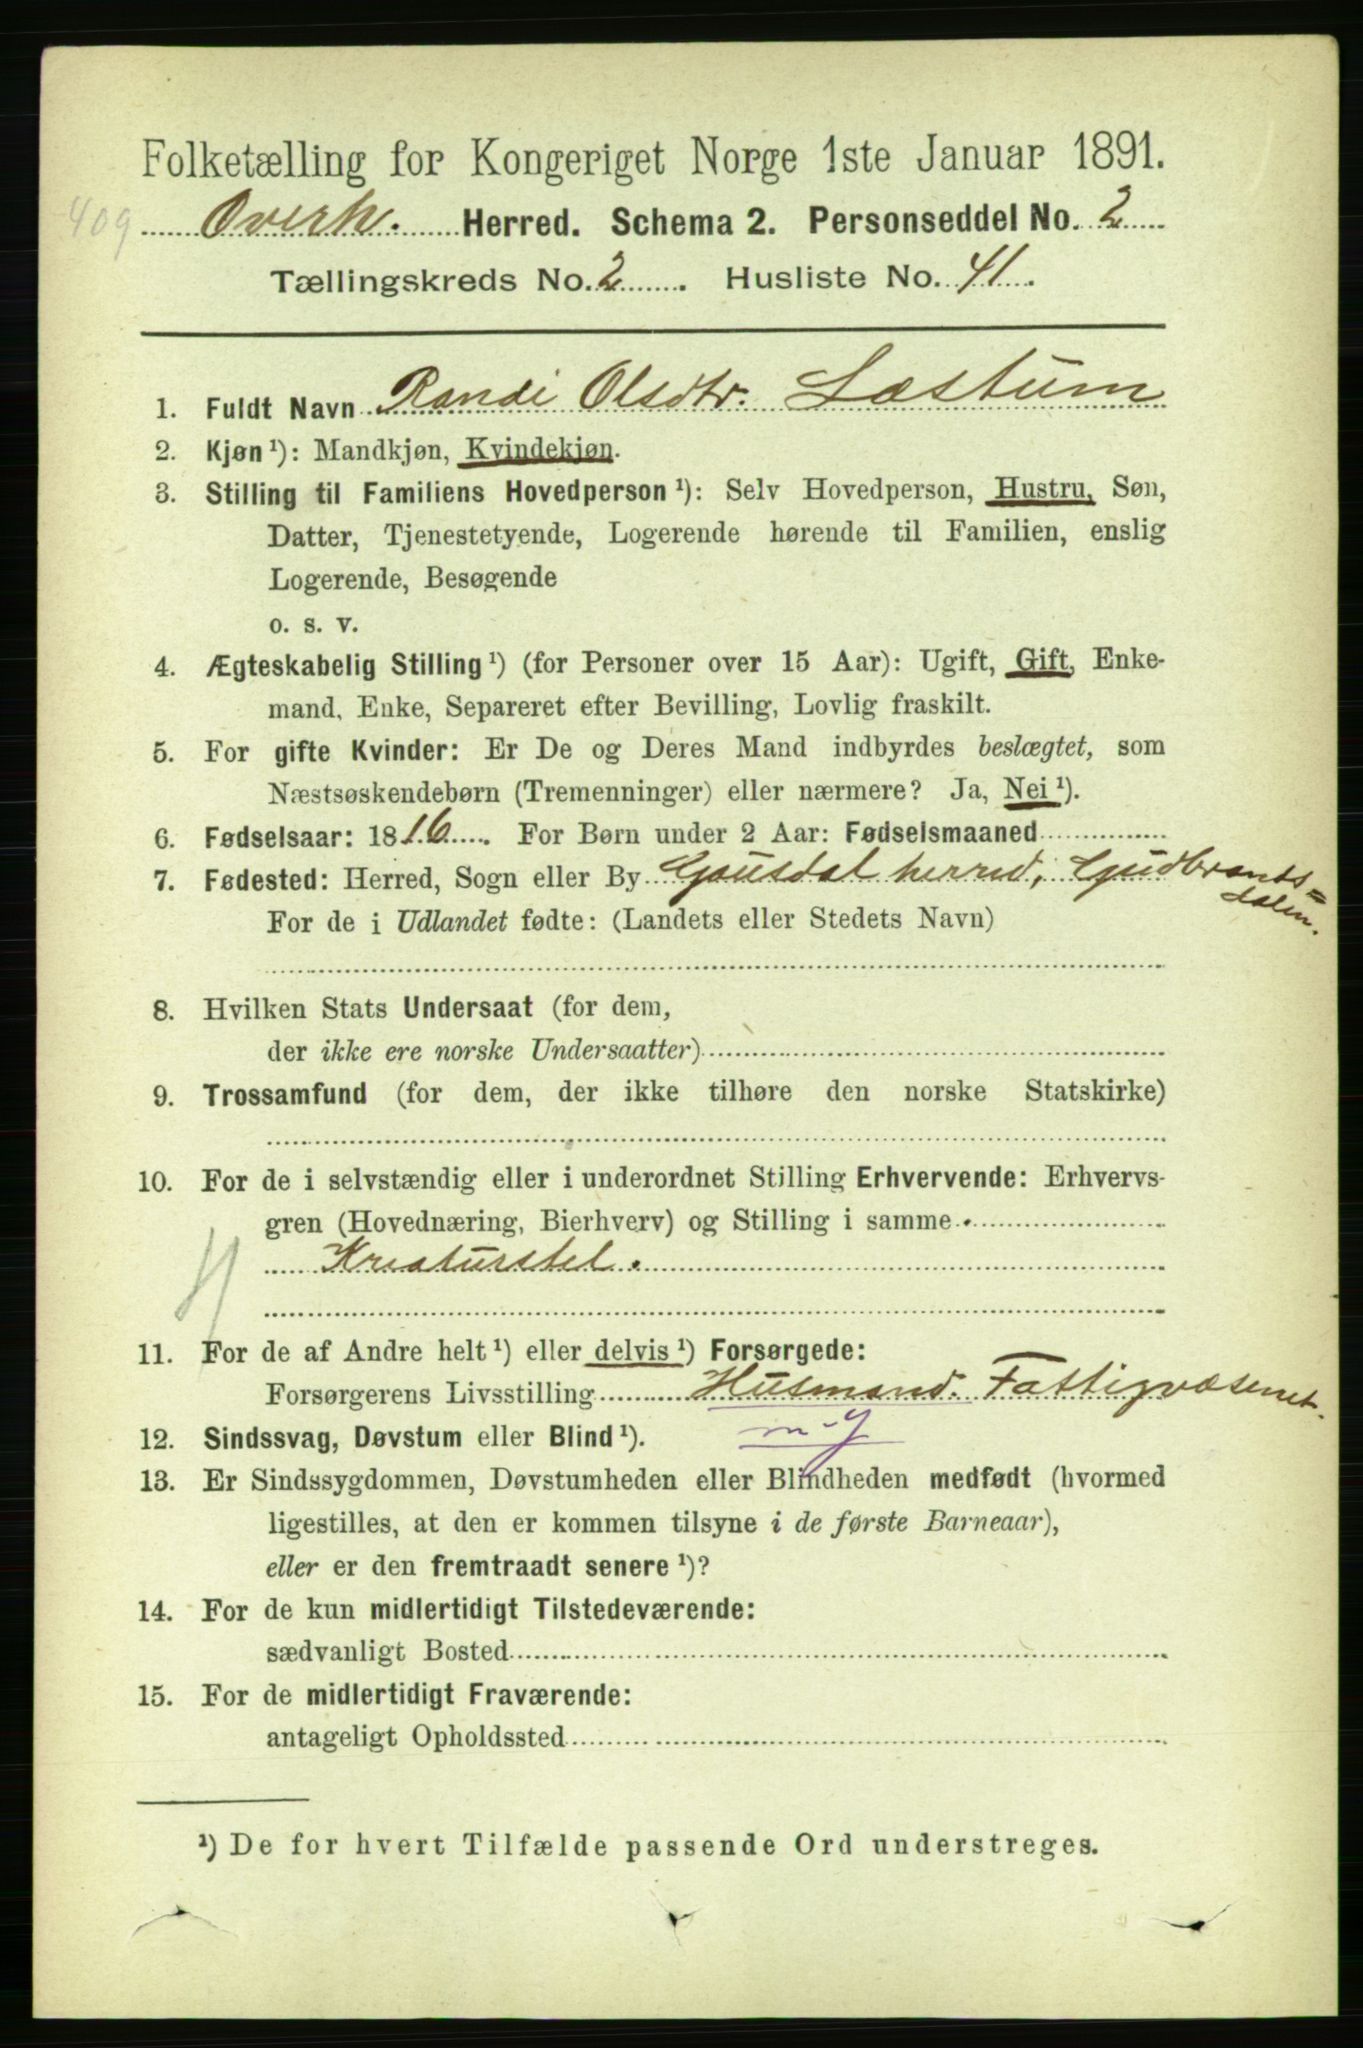 Folketælling for Kongeriget Norge 1ste Januar 1891.
409 Overh. Herred. Schema 2. Personseddel No. 2
Tællingskreds No. 2. Husliste No. 41.
1. Fuldt Navn Randi Olsdtr. Læstum
2. Kjøn¹): Mandkjøn, Kvindekjøn.
3. Stilling til Familiens Hovedperson¹): Selv Hovedperson, Hustru, Søn,
Datter, Tjenestetyende, Logerende hørende til Familien, enslig
Logerende, Besøgende
o. s. v.
4. Ægteskabelig Stilling¹) (for Personer over 15 Aar): Ugift, Gift, Enke-
mand, Enke, Separeret efter Bevilling, Lovlig fraskilt.
5. For gifte Kvinder: Er De og Deres Mand indbyrdes beslægtet, som
Næstsøskendebørn (Tremenninger) eller nærmere? Ja, Nei¹).
6. Fødselsaar: 1816. For Børn under 2 Aar: Fødselsmaaned
7. Fødested: Herred, Sogn eller By Gausdal herred, Gudbrands=
dalen.
For de i Udlandet fødte: (Landets eller Stedets Navn)
8. Hvilken Stats Undersaat (for dem,
der ikke ere norske Undersaatter)
9. Trossamfund (for dem, der ikke tilhøre den norske Statskirke)
10. For de i selvstændig eller i underordnet Stilling Erhvervende: Erhvervs-
gren (Hovednæring, Bierhverv) og Stilling i samme
Kreaturstel.
11. For de af Andre helt¹) eller delvis¹) Forsørgede:
Forsørgerens Livsstilling Husmand. Fattigvæsenet.
12. Sindssvag, Døvstum eller Blind¹). m-g
13. Er Sindssygdommen, Døvstumheden eller Blindheden medfødt (hvormed
ligestilles, at den er kommen tilsyne i de første Barneaar),
eller er den fremtraadt senere¹)?
14. For de kun midlertidigt Tilstedeværende:
sædvanligt Bosted
15. For de midlertidigt Fraværende:
antageligt Opholdssted
¹) De for hvert Tilfælde passende Ord understreges.